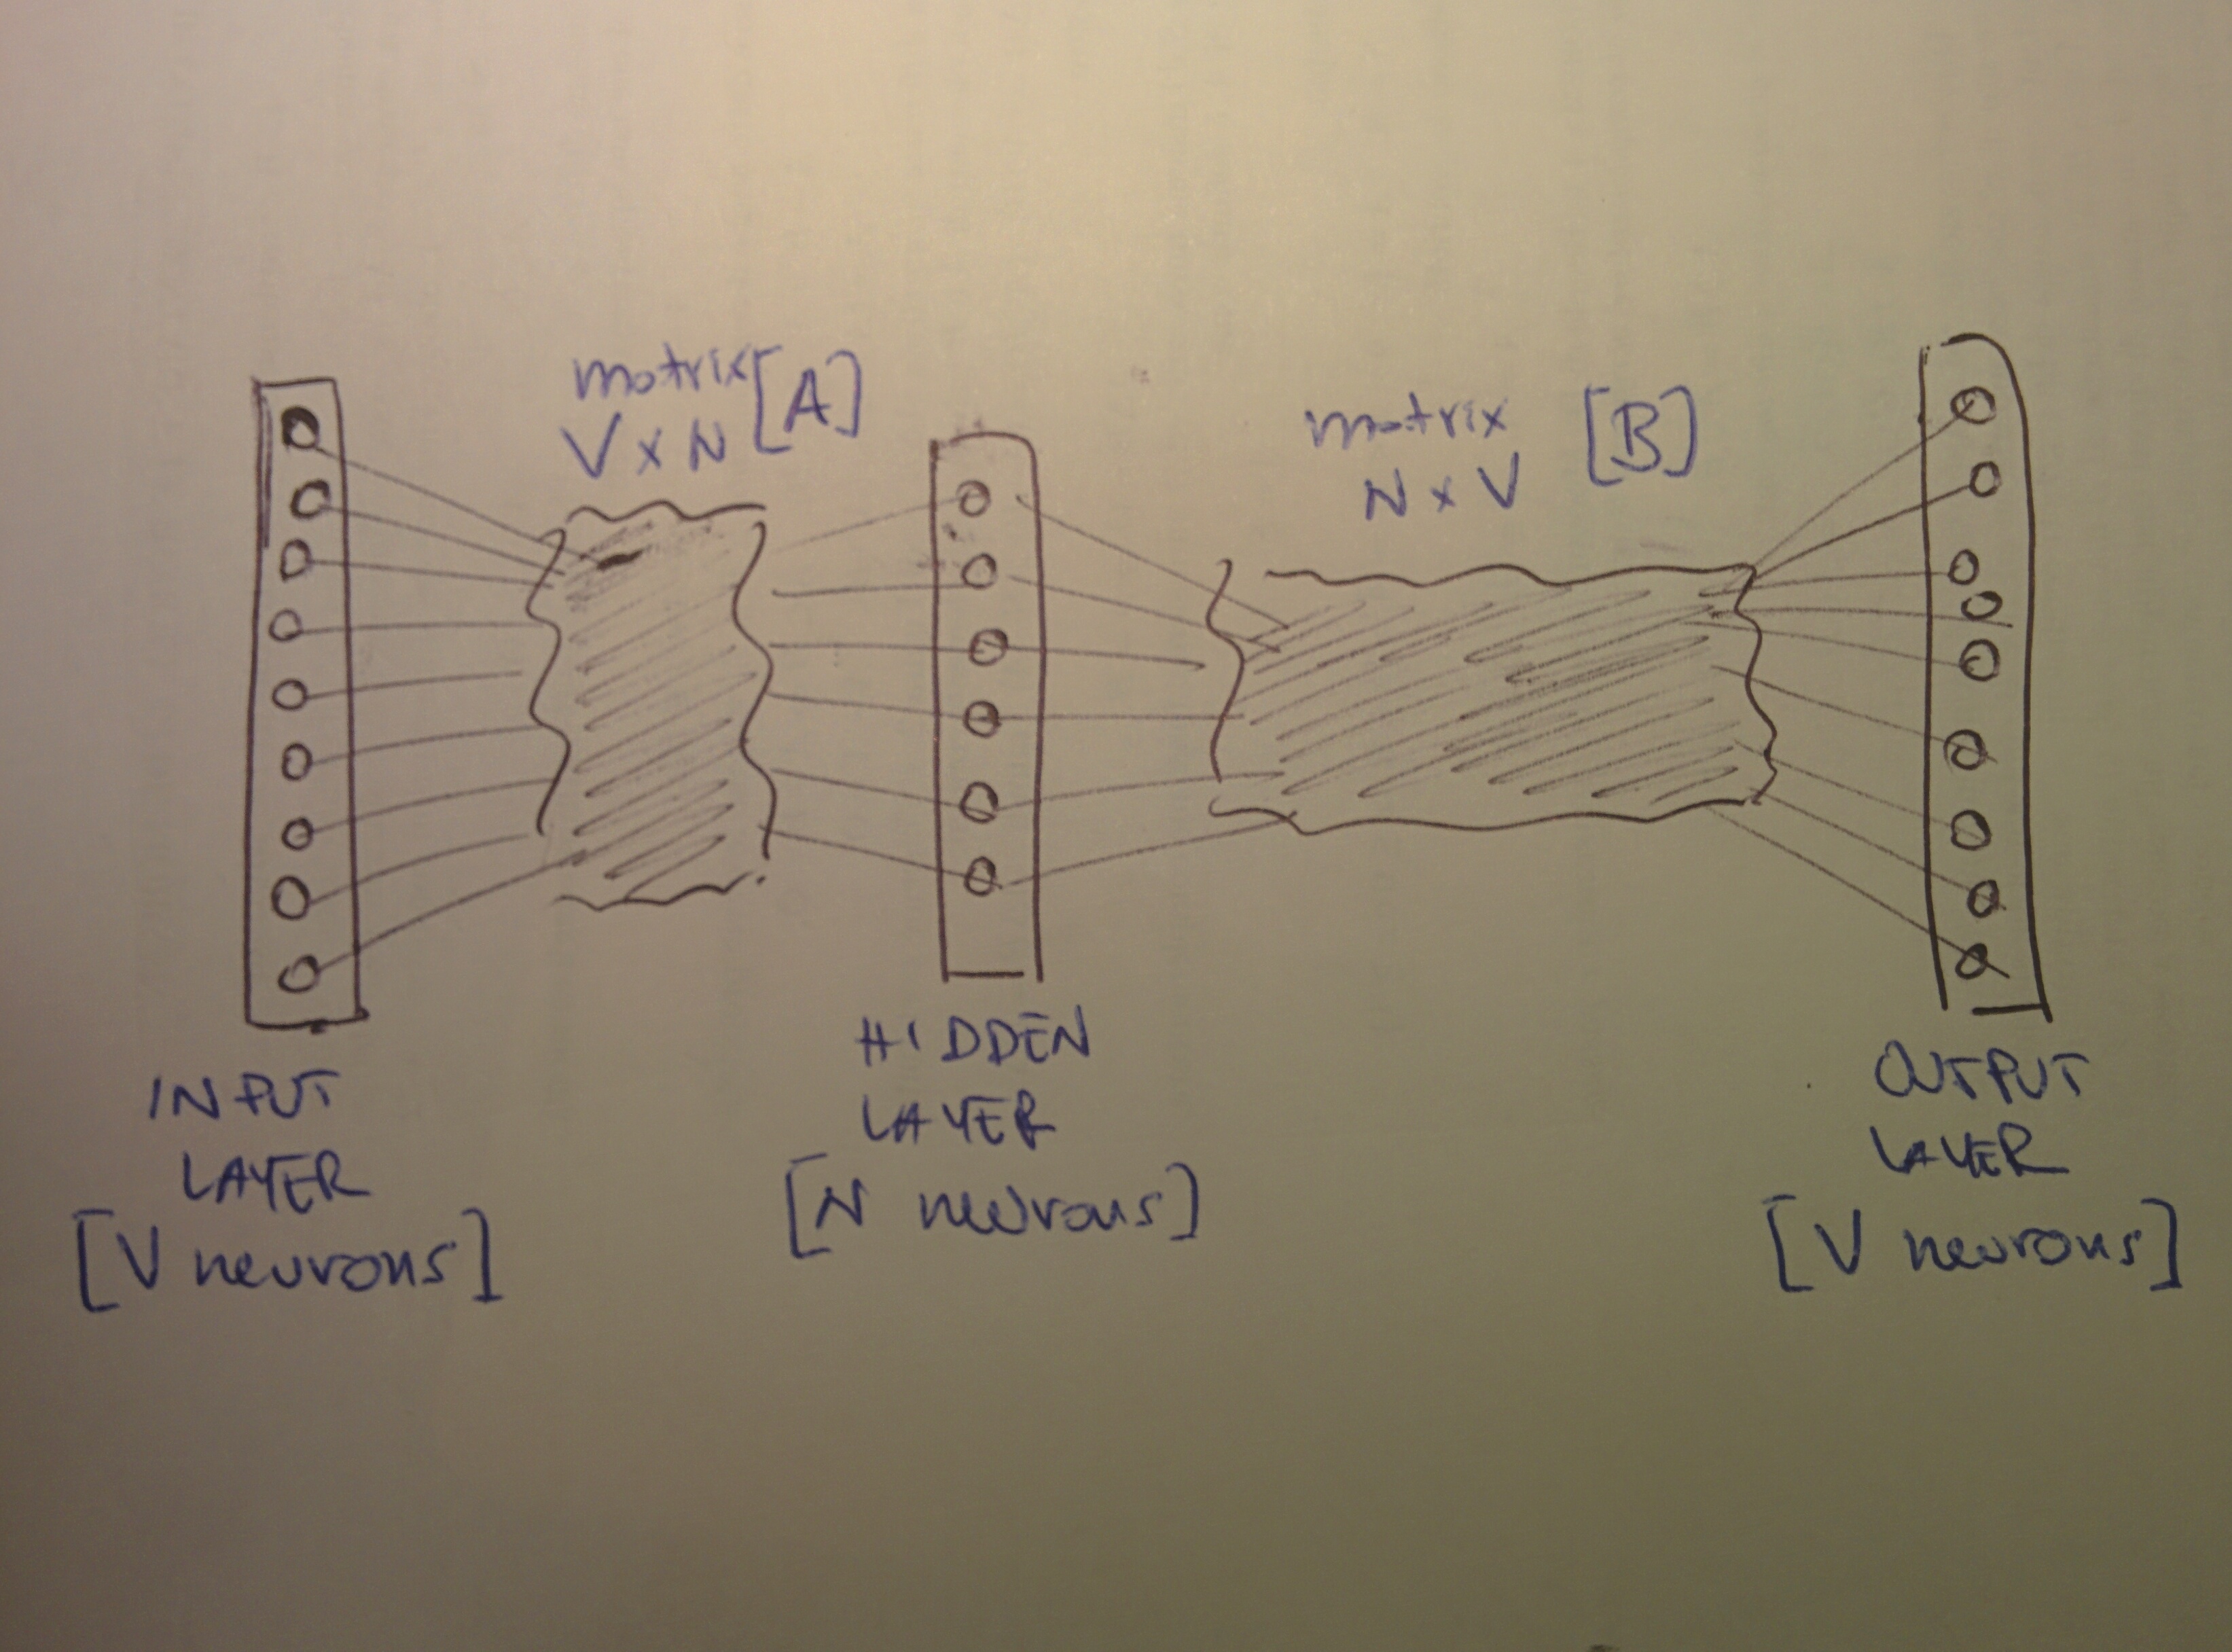 matrix [A]
V x N
matrix [B]
N x V
INPUT
LAYER
[V neurons]
HIDDEN
LAYER
[N neurons]
OUTPUT
LAYER
[V neurons]